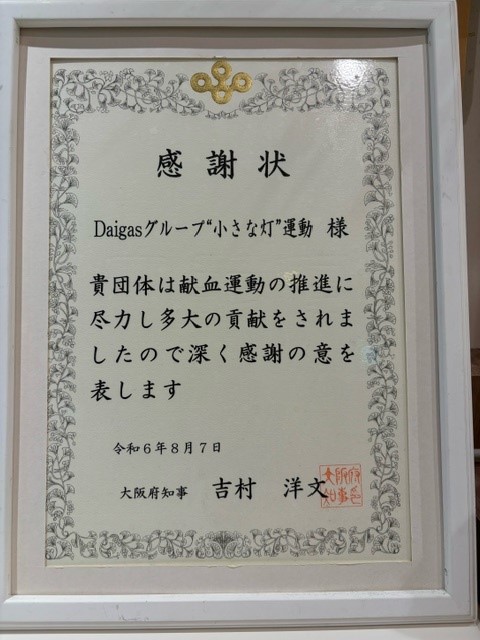 感謝状
Daigasグループ“小さな灯”運動 様
貴団体は献血運動の推進に
尽力し多大の貢献をされま
したので深く感謝の意を
表します
令和6年8月7日
大阪府知事 吉村 洋文